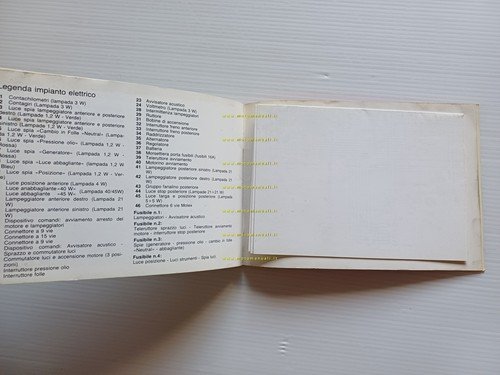 Legenda impianto elettrico
1 Contachilometri (lampada 3 W)
2 Contagiri (Lampada 3 W)
3 Luce spia lampeggiatore anteriore e posteriore
destro (Lampada 1,2 W - Verde)
Luce spia lampeggiatore anteriore e posteriore
sinistro (Lampada 1,2 W - Verde)
Luce spia «Cambio in Folle «Neutral» (Lampa-
1,2 W - Verde)
Luce spia «Pressione olio» (Lampada 1,2 W -
Rossa)
Luce spia «Generatore» (Lampada 1,2 W -
Rossa)
Luce spia «Luce abbagliante» (lampada 1,2 W
Bleu)
Luce spia «Posizione» (Lampada 1,2 W - Ver-
de)
Luce posizione anteriore (Lampada 4 W)
Luce anabbagliante «40 W»
Luce abbagliante «45 W» (Lampada 40/45W)
Lampeggiatore anteriore destro (Lampada 21
W)
Lampeggiatore anteriore sinistro (Lampada 21
W)
Dispositivo comandi: avviamento arresto del
motore e lampeggiatori
Connettore a 9 vie
Connettore a 15 vie
Connettore a 9 vie
Dispositivo comandi: Avvisatore acustico -
Sprazzo e commutatore luci
Commutatore luci e accensione motore (3 posi-
zioni)
Interruttore pressione olio
Interruttore folle
23 Avvisatore acustico
24 Voltmetro (Lampada 3 W)
28 Intermittenza lampeggiatori
29 Ruttore
31 Bobine di accensione
32 Interruttore freno anteriore
33 Interruttore freno posteriore
34 Raddrizzatore
35 Alternatore
36 Regolatore
37 Batteria
38 Morsettiera porta fusibili (fusibili 16A)
39 Teleruttore avviamento
40 Motorino avviamento
41 Lampeggiatore posteriore sinistro (Lampada 21
W)
42 Lampeggiatore posteriore destro (Lampada 21
W)
43 Gruppo fanalino posteriore
44 Luce stop posteriore (Lampada 21+21 W)
45 Luce targa e posizione posteriore (Lampada
5+5 W)
46 Connettore 6 vie Molex
Fusibile n.1:
Lampeggiatori - Avvisatore acustico
Fusibile n.2:
Teleruttore sprazzo luci - Teleruttore avviamento
motore - interruttore stop posteriore
Fusibile n.3:
Spie (generatore - pressione olio - cambio in folle
«Neutral» - abbagliante)
Fusibile n.4:
Luce posizione - Luci strumenti - Spia luci
www.motomanuali.it
www.motomanuali.it
www.motomanuali.it
www.motomanuali.it